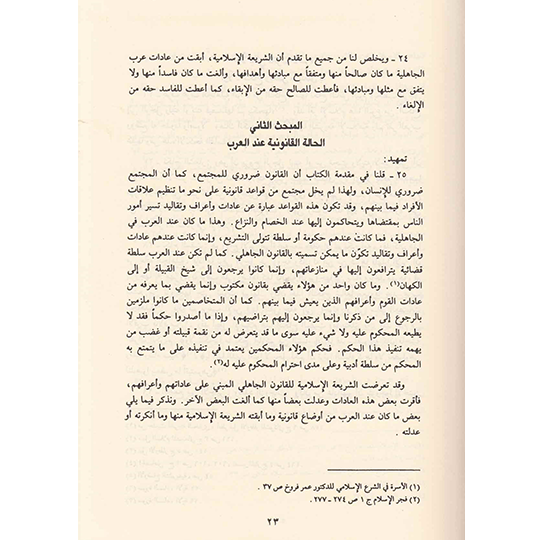 ٢٤ ـ ويخلص لنا من جميع ما تقدم أن الشريعة الإسلامية، أبقت من عادات عرب
الجاهلية ما كان صالحاً منها ومتفقاً مع مبادئها وأهدافها، وألغت ما كان فاسداً منها ولا
يتفق مع مثلها ومبادئها، فأعطت للصالح حقه من الإبقاء، كما أعطت للفاسد حقه من
الإلغاء .
المبحث الثاني
الحالة القانونية عند العرب
تمهيد :
٢٥ ـ قلنا في مقدمة الكتاب أن القانون ضروري للمجتمع، كما أن المجتمع
ضروري للإنسان، ولهذا لم يخل مجتمع من قواعد قانونية على نحو ما تنظيم علاقات
الأفراد فيما بينهم، وقد تكون هذه القواعد عبارة عن عادات وأعراف وتقاليد تسير أمور
الناس بمقتضاها ويتحاكمون إليها عند الخصام والنزاع. وهذا ما كان عند العرب في
الجاهلية، فما كانت عندهم حكومة أو سلطة تتولى التشريع، وإنما كانت عندهم عادات
وأعراف وتقاليد تكوّن ما يمكن تسميته بالقانون الجاهلي. كما لم تكن عند العرب سلطة
قضائية يترافعون إليها في منازعاتهم، وإنما كانوا يرجعون إلى شيخ القبيلة أو إلى
الكهان(١). وما كان واحد من هؤلاء يقضي بقانون مكتوب وإنما يقضي بما يعرفه من
عادات القوم وأعرافهم الذين يعيش فيما بينهم. كما أن المتخاصمين ما كانوا ملزمين
بالرجوع إلى من ذكرنا وإنما يرجعون إليهم بتراضيهم، وإذا ما أصدروا حكماً فقد لا
يطيعه المحكوم عليه ولا شيء عليه سوى ما قد يتعرض له من نقمة قبيلته أو غضب من
يهمه تنفيذ هذا الحكم. فحكم هؤلاء المحكمين يعتمد في تنفيذه على ما يتمتع به
المحكم من سلطة أدبية وعلى مدى احترام المحكوم عليه له(٢).
وقد تعرضت الشريعة الإسلامية للقانون الجاهلي المبني على عاداتهم وأعرافهم،
فأقرت بعض هذه العادات وعدلت بعضاً منها كما ألغت البعض الآخر. ونذكر فيما يلي
بعض ما كان عند العرب من أوضاع قانونية وما أبقته الشريعة الإسلامية منها وما أنكرته أو
عدلته .
(١) الأسرة في الشرع الإسلامي للدكتور عمر فروخ ص ٣٧ .
(٢) فجر الإسلام ج ١ ص ٢٧٤ ـ ٢٧٧ .
٢٣